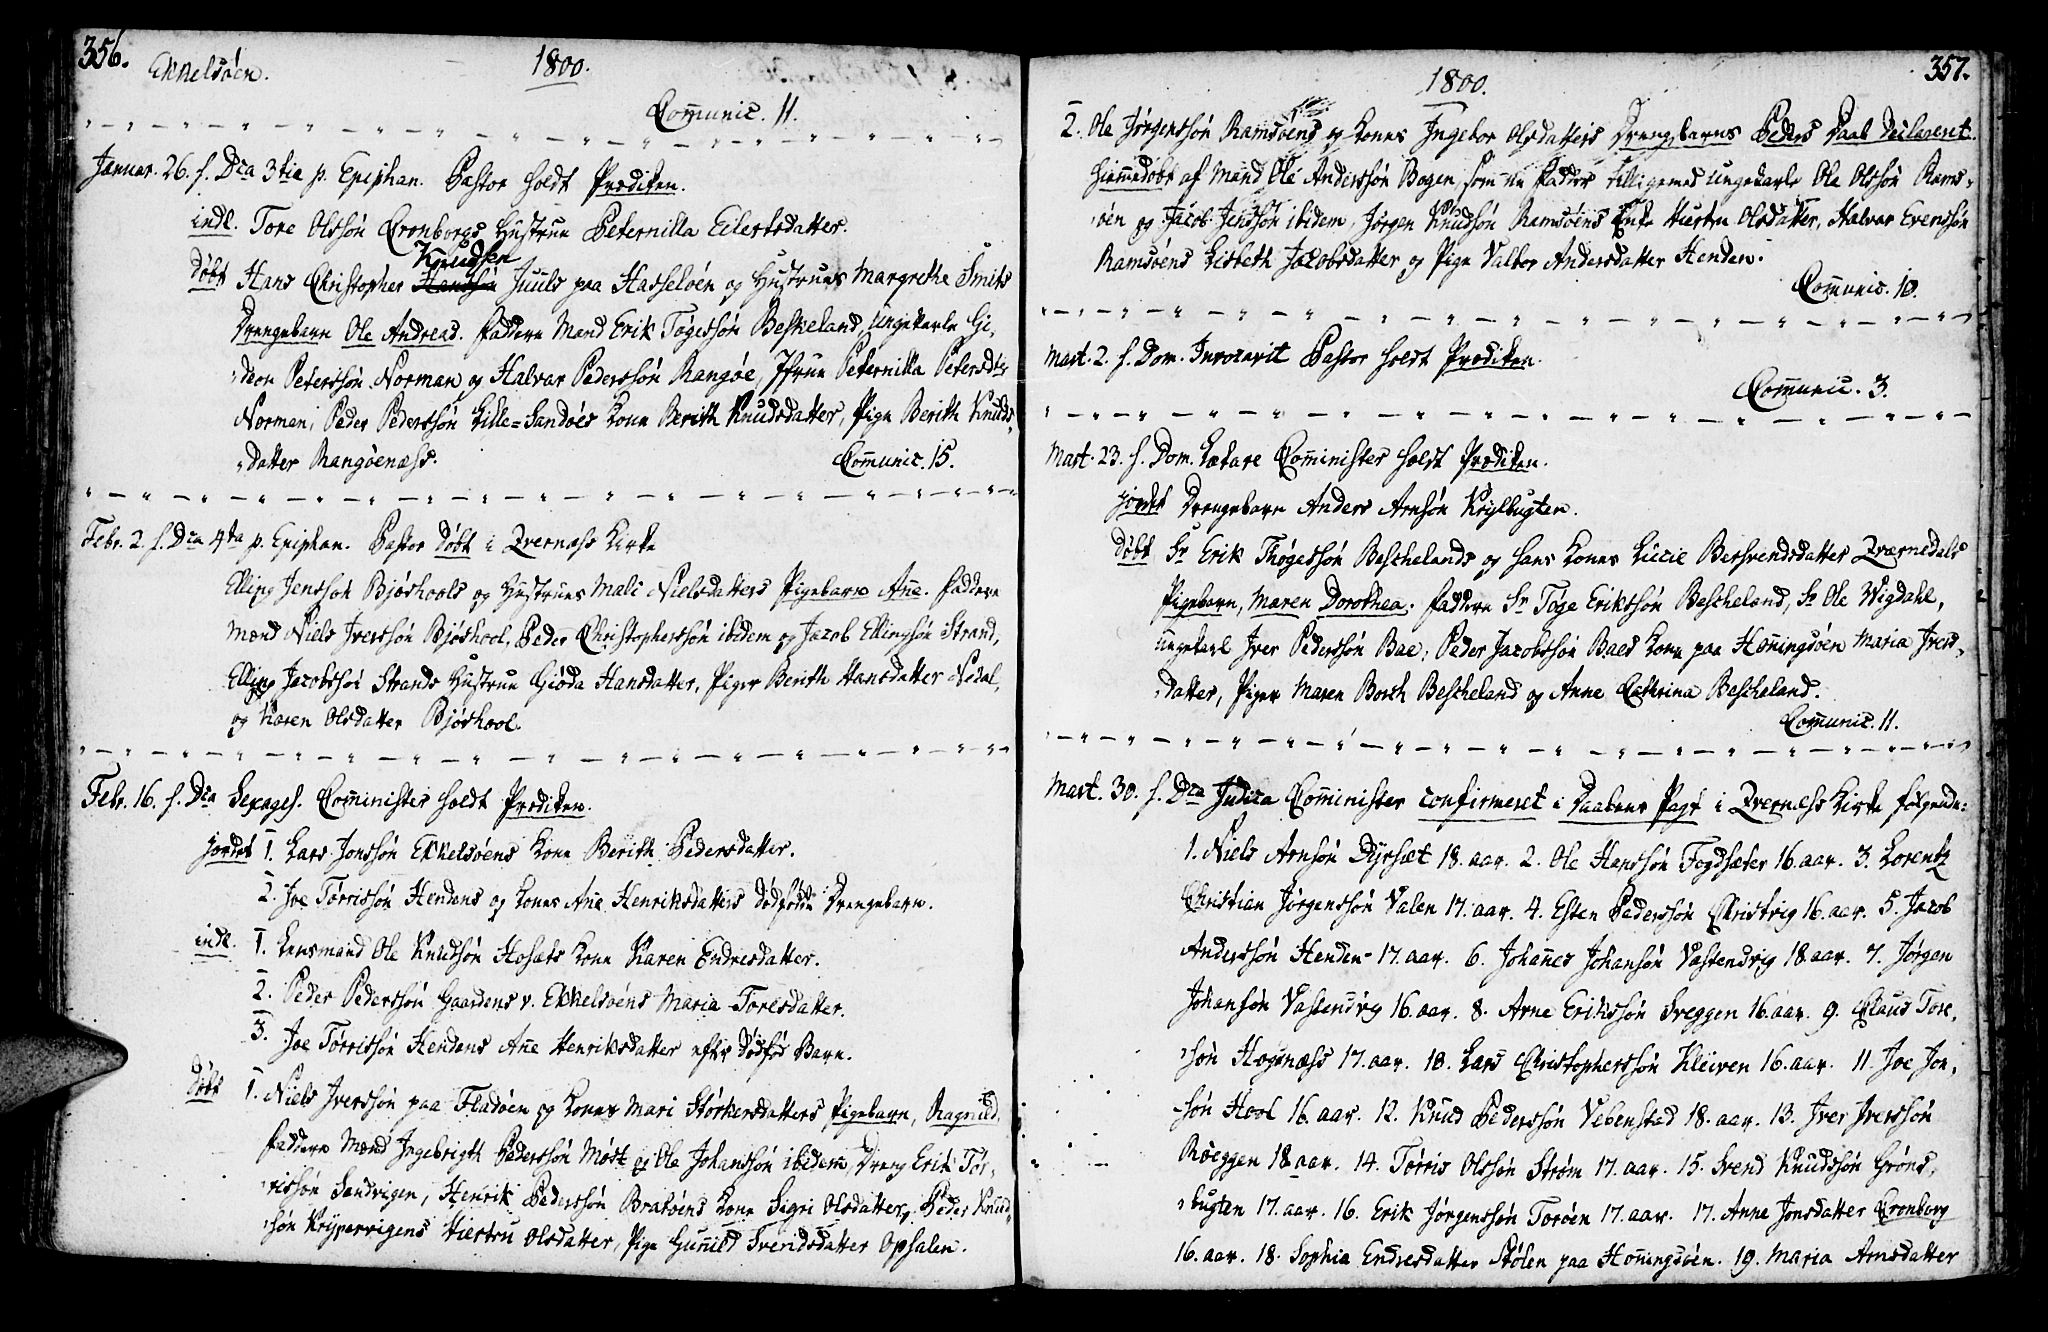 356.
Ekkelsöen.
1800.
Comunic. 11.
Januar. 26. f. Dca 3tia p. Epiphan. Pastor holdt Prædiken.
indl. Tore Olssön Cronborgs Hustrue Peternilla Eilertsdatter.
Knudsen
döbt Hans Christopher Hanssön Juuls paa Hasselöen og Hustrues Margrethe Smits
Drengebarn Ole Andreas. Faddere Mand Erik Tögessön Beskeland, Ungekarle Gi-
deon Peterssön Norman og Halvar Pederssön Rangöe, Jfrue Peternilla Petersdtr
Norman, Peder Pederssön Lille-Sandöes Kone Berith Knudsdatter, Pige Berith Knuds-
datter Rangöenæss.
Comunic. 15.
Febr. 2. f. Dca 4ta p. Epiphan. Pastor döbt i Qvernæss Kirke
Elling Jenssön Bjöshools og Hustrues Mali Nielsdatters Pigebarn Ane. Faddere
Mænd Niels Iverssön Bjöshool, Peder Christopherssön ibidem og Jacob Ellingsön Strand,
Elling Jacobssön Strands Hustrue Giöda Hansdatter, Piger Berith Hansdatter Nedal,
og Karen Olsdatter Bjöshool.
Febr. 16. f. Dca Sexages. Cominister holdt Prædiken.
jordet 1. Lars Jonssön Ekkelsöens Kone Berith Pedersdatter.
2. Joe Törrissön Hendens og Kones Ane Henriksdatters dödfödde Drengebarn.
indl. 1. Lensmand Ole Knudsön Hosets Kone Karen Endresdatter.
2. Peder Pederssön Gaardens v. Ekkelsöens Maria Toresdatter.
3. Joe Törrissön Hendens Ane Henriksdatter efter dödfød Barn.
Döbt 1. Niels Iverssön paa Fladöen og Kones Mari Störkersdatters Pigebarn, Ragnild,
Faddere Mænd Ingebrigth Pederssön Möst og Ole Johanssön ibidem, Dreng Erik Tör-
rissön Sandvigen, Henrik Pederssön Bratöens Kone Sigri Olsdatter, Peder Knud-
sön Krypervigens Hiestru Olsdatter, Pige Gunild Svendsdatter Opsalen.
357.
1800.
2. Ole Jörgenssön Ramsöens og Kones Ingebor Olsdatters Drengebarns Peders Daab declareret
hjemmedöbt af Mand Ole Anderssön Bogen, som nu Fadder tilligemed Ungekarle Ole Olssön Rams-
öen og Jacob Jenssön ibidem, Jörgen Knudsön Ramsöens Enke Hiestru Olsdatter, Halvar Evenssön
Ramsöens Lisbeth Jacobsdatter og Pige Valbor Andersdatter Henden.
Comunic. 10.
Mart. 2. f. Dom. Invocavit Pastor holdt Prædiken.
Comunic. 3.
Mart. 23. f. Dom. Lætare Cominister holdt Prædiken.
jordet Drengebarn Anders Arnsön Krylbugten.
Döbt Sr Erik Thögessön Beschelands og hans Kones Lucie Bersvendsdatter Qværnedals
Pigebarn, Maren Dorothea. Faddere Sr Töge Erikssön Bescheland, Sr Ole Wigdahl,
Ungekarl Iver Pederssön Bae, Peder Jacobssön Baes Kone paa Honingsöen Maria Ivers-
datter, Piger Maren Borth Bescheland og Anne Cathrina Bescheland.
Comunic. 11.
Mart. 30. f. Dca Judica Cominister confirmeret i Daabens Pagt i Qvernæss Kirke følgende:
1. Niels Arnsön Dyrsæt 18. aar. 2. Ole Hanssön Fogdsæter 16. aar. 3. Lorentz
Christian Jörgenssön Valen 17. aar. 4. Esten Pederssön Christvig 16. aar. 5. Jacob
Anderssön Henden 17. aar. 6. Johannes Johansön Vastendvig 18. aar. 7. Jörgen
Johansön Vastendvig 16. aar. 8. Arne Erikssön Sveggen 16. aar. 9. Claus Tore-
sön Hogsnæss 17. aar. 10. Lars Christopherssön Kleiven 16. aar. 11. Joe Jon-
sön Hool 16. aar. 12. Knud Pederssön Vebenstad 18. aar. 13. Iver Iverssön
Röeggen 18. aar. 14. Törris Olssön Ström 17. aar. 15. Svend Knudssön Gröns-
bugten 17. aar. 16. Erik Jörgenssön Toröen 17. aar. 17. Anne Jonsdatter Cronborg
16. aar. 18. Sophia Endresdatter Stölen paa Honingsöen. 19. Maria Arnsdatter